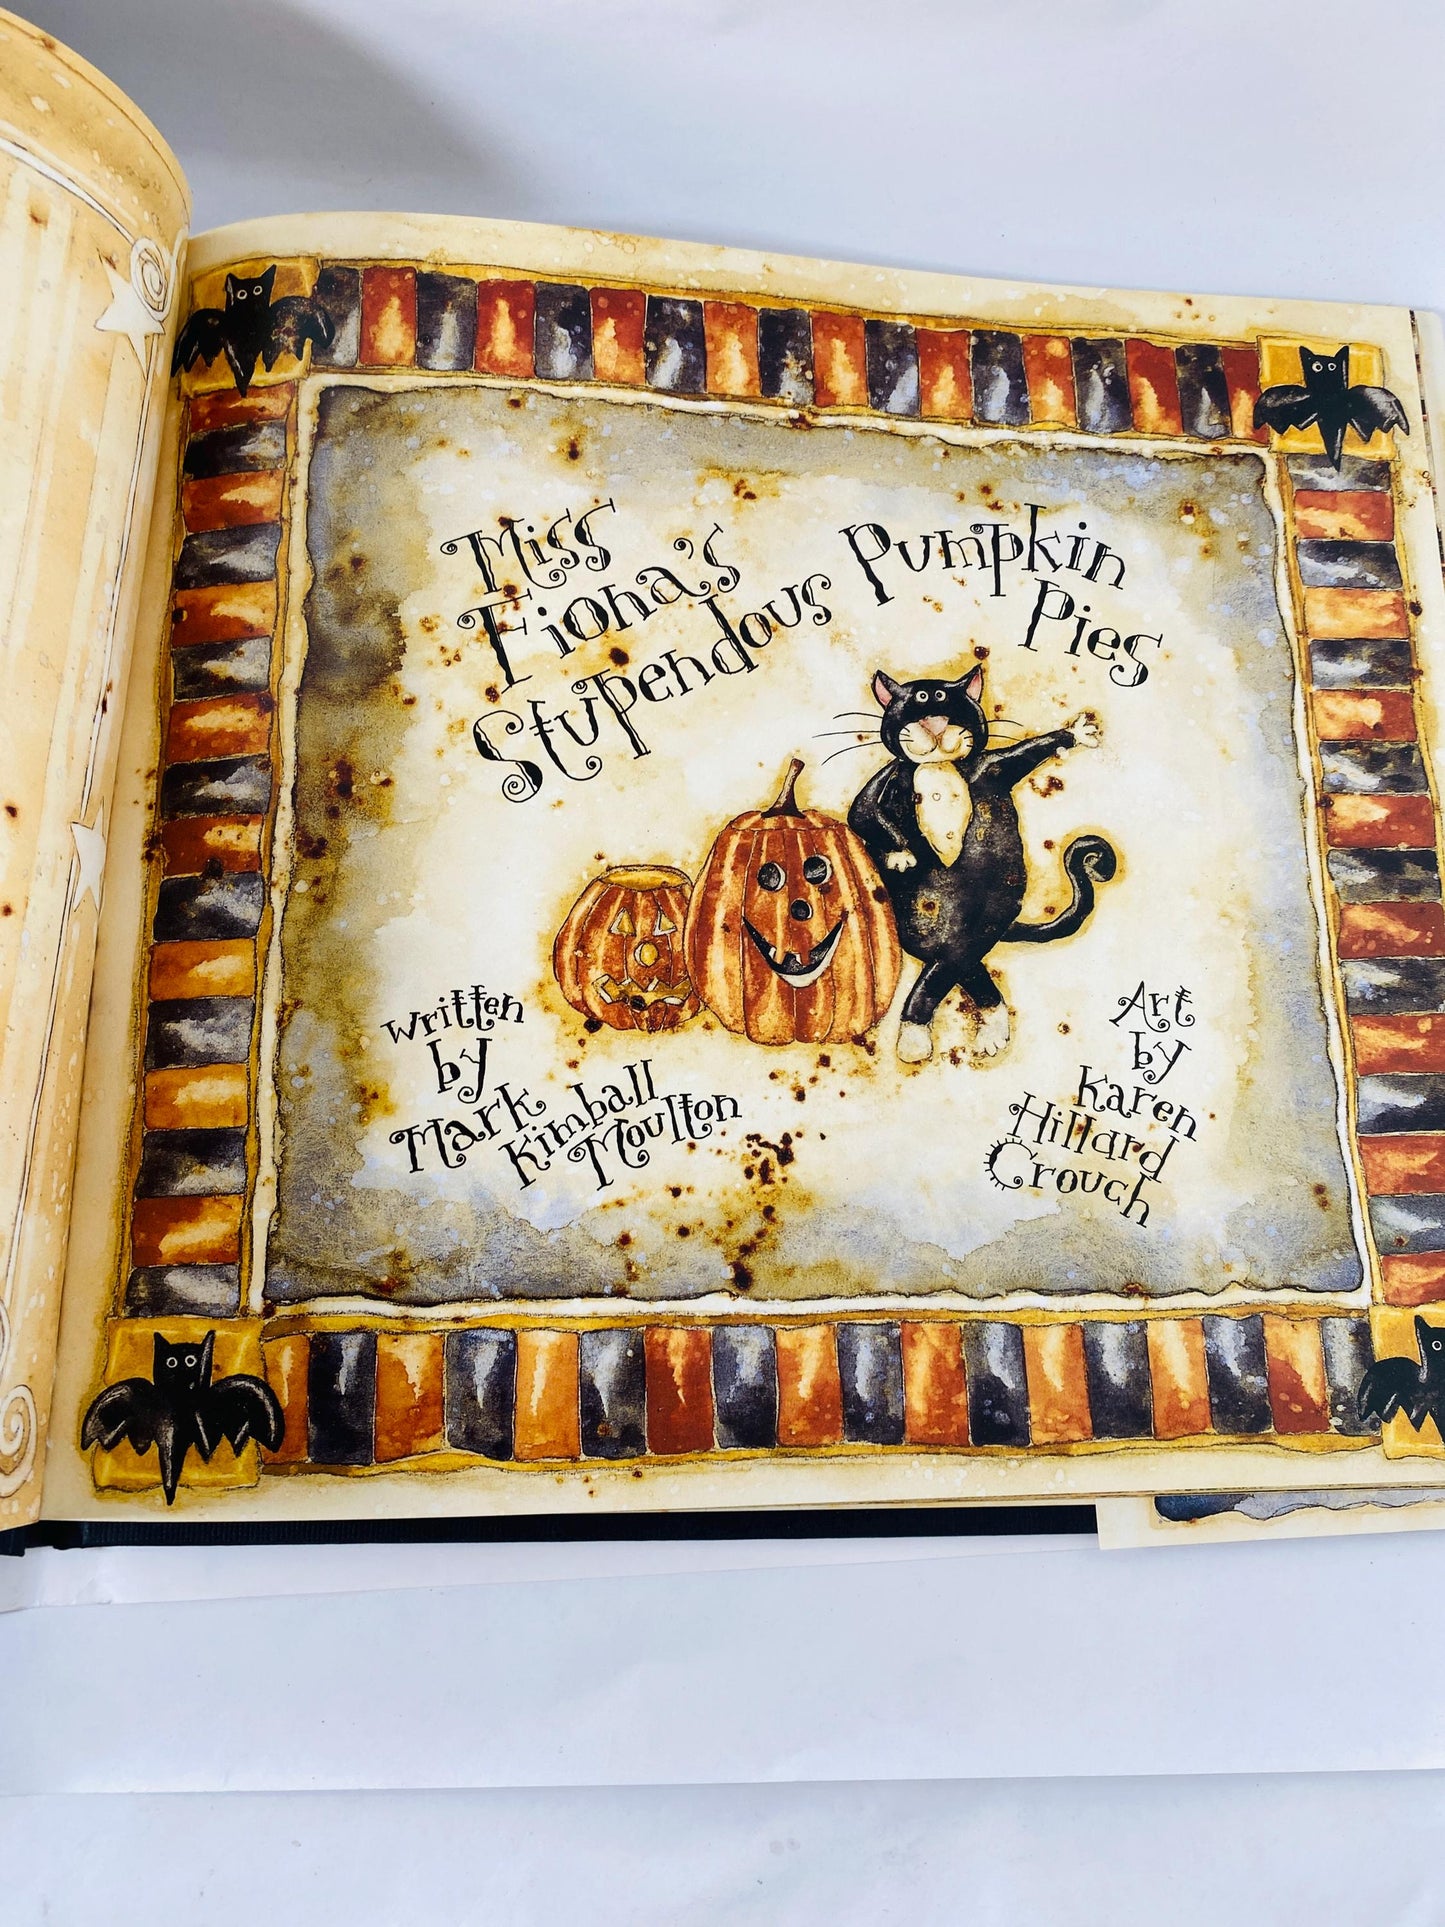 Miss
Fiona's
Stupendous Pumpkin
Pies
written
by
Mark
Kimball
Moulton
Art
by
Karen
Hillard
Crouch